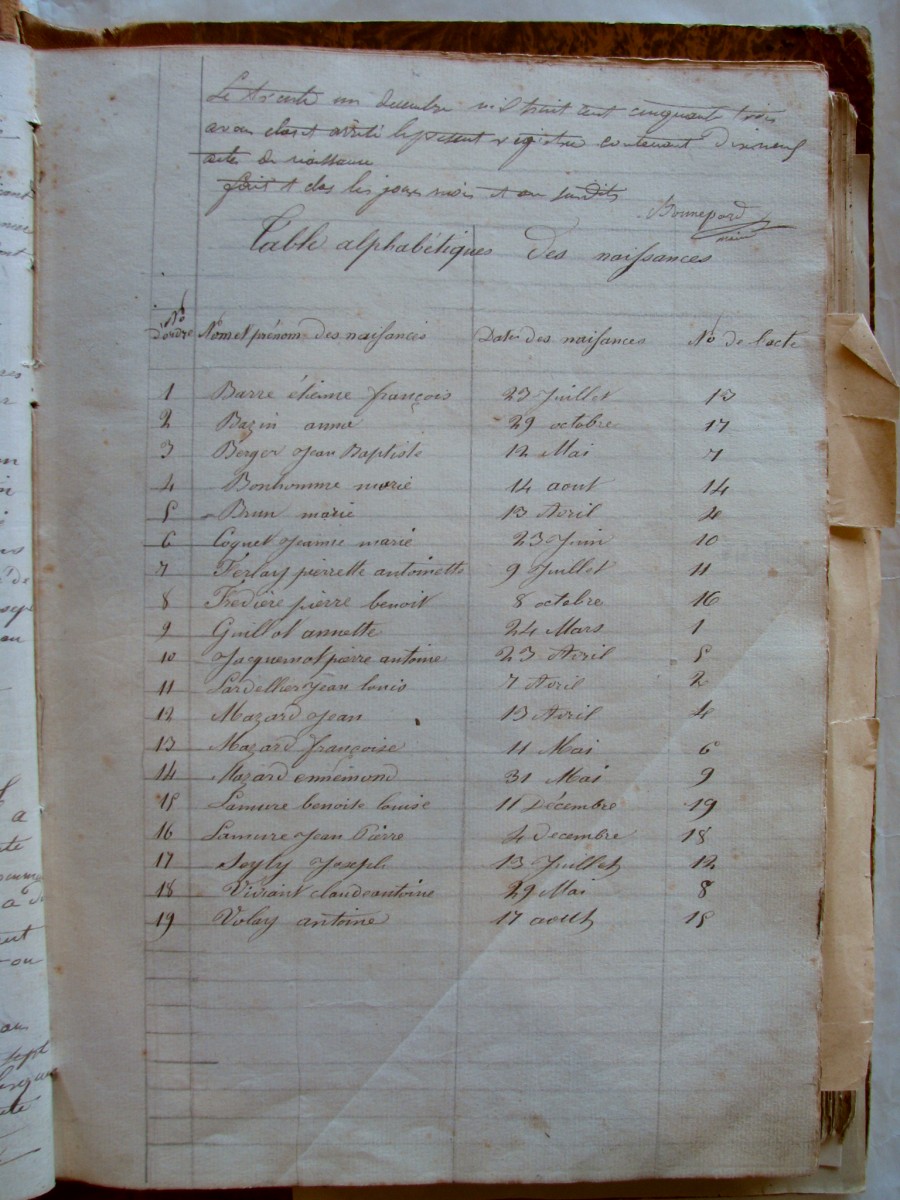 Le trente un decembre mil huit cent cinquante trois
avons clos et arrêté le présent registre contenant dixneuf
actes de naissance
fait et clos les jour mois et an susdits
Bonnepard
maire
Table alphabétiques des naissances
No d'ordre Nom et prénom des naissances Date des naissances No de l'acte
1 Barre étienne françois 23 Juillet 13
2 Bazin anna 29 octobre 17
3 Berger Jean Baptiste 12 Mai 7
4 Bonhomme marie 14 aout 14
5 Brun marie 13 Avril
6 Coquet Jeanne marie 23 Juin 10
7 Ferlay pierrette antoinette 9 Juillet 11
8 Fredière pierre benoit 8 octobre 16
9 Guillot annette 24 Mars 1
10 Jacquemot pierre antoine 23 Avril 5
11 Lardellier Jean louis 7 Avril 2
12 Mazard Jean 13 Avril 4
13 Mazard françoise 11 Mai 6
14 Mazard ennemond 31 Mai 9
15 Lamure benoite louise 11 Décembre 19
16 Lamure Jean Pierre 4 decembre 18
17 Joseph 13 Juillet 12
18 claude antoine 29 Mai 8
19 Volay antoine 17 aout 15